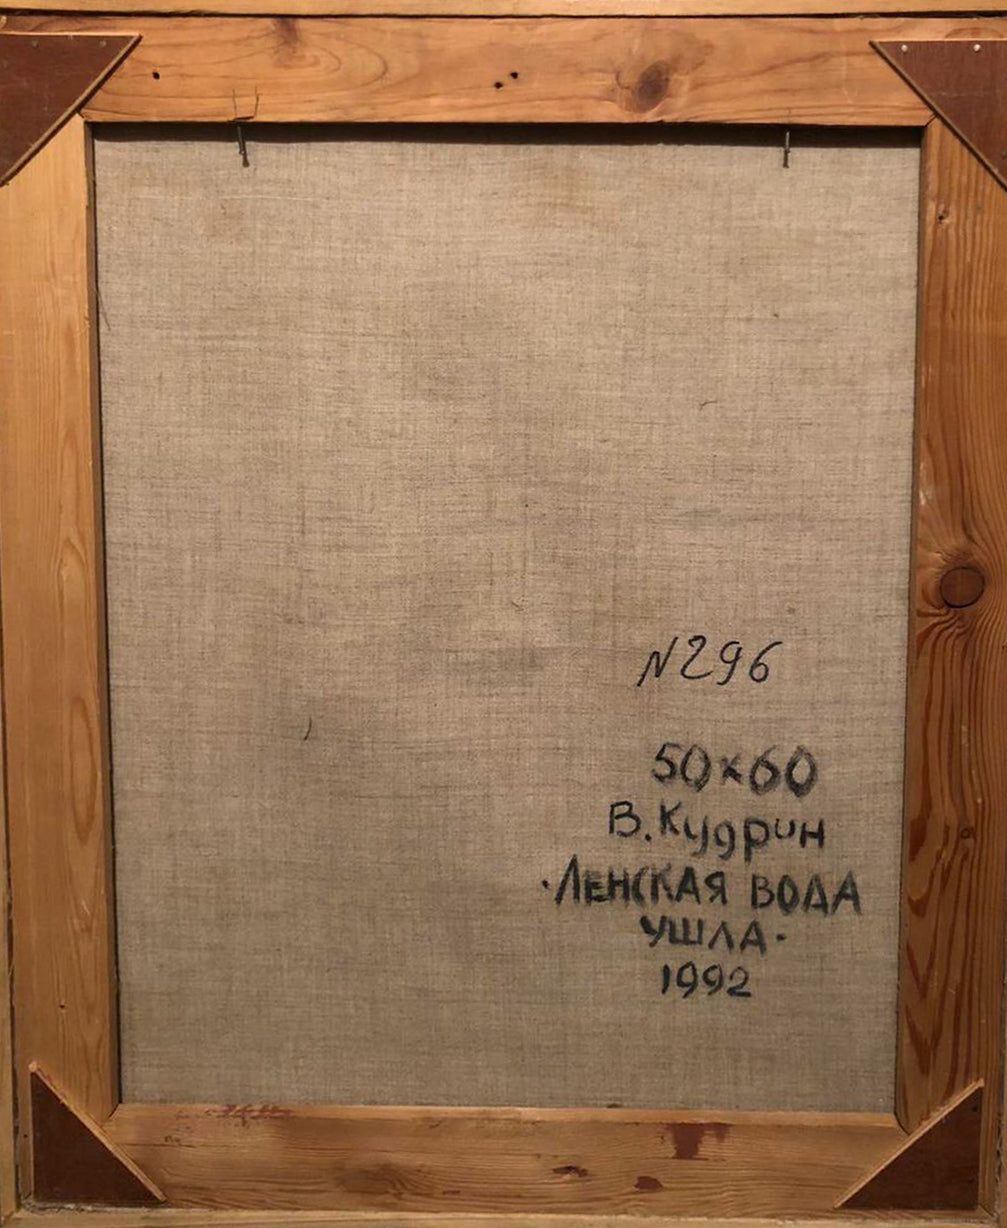 N296
50×60
В. Кудрин
·ЛЕНСКАЯ ВОДА
УШЛА·
1992